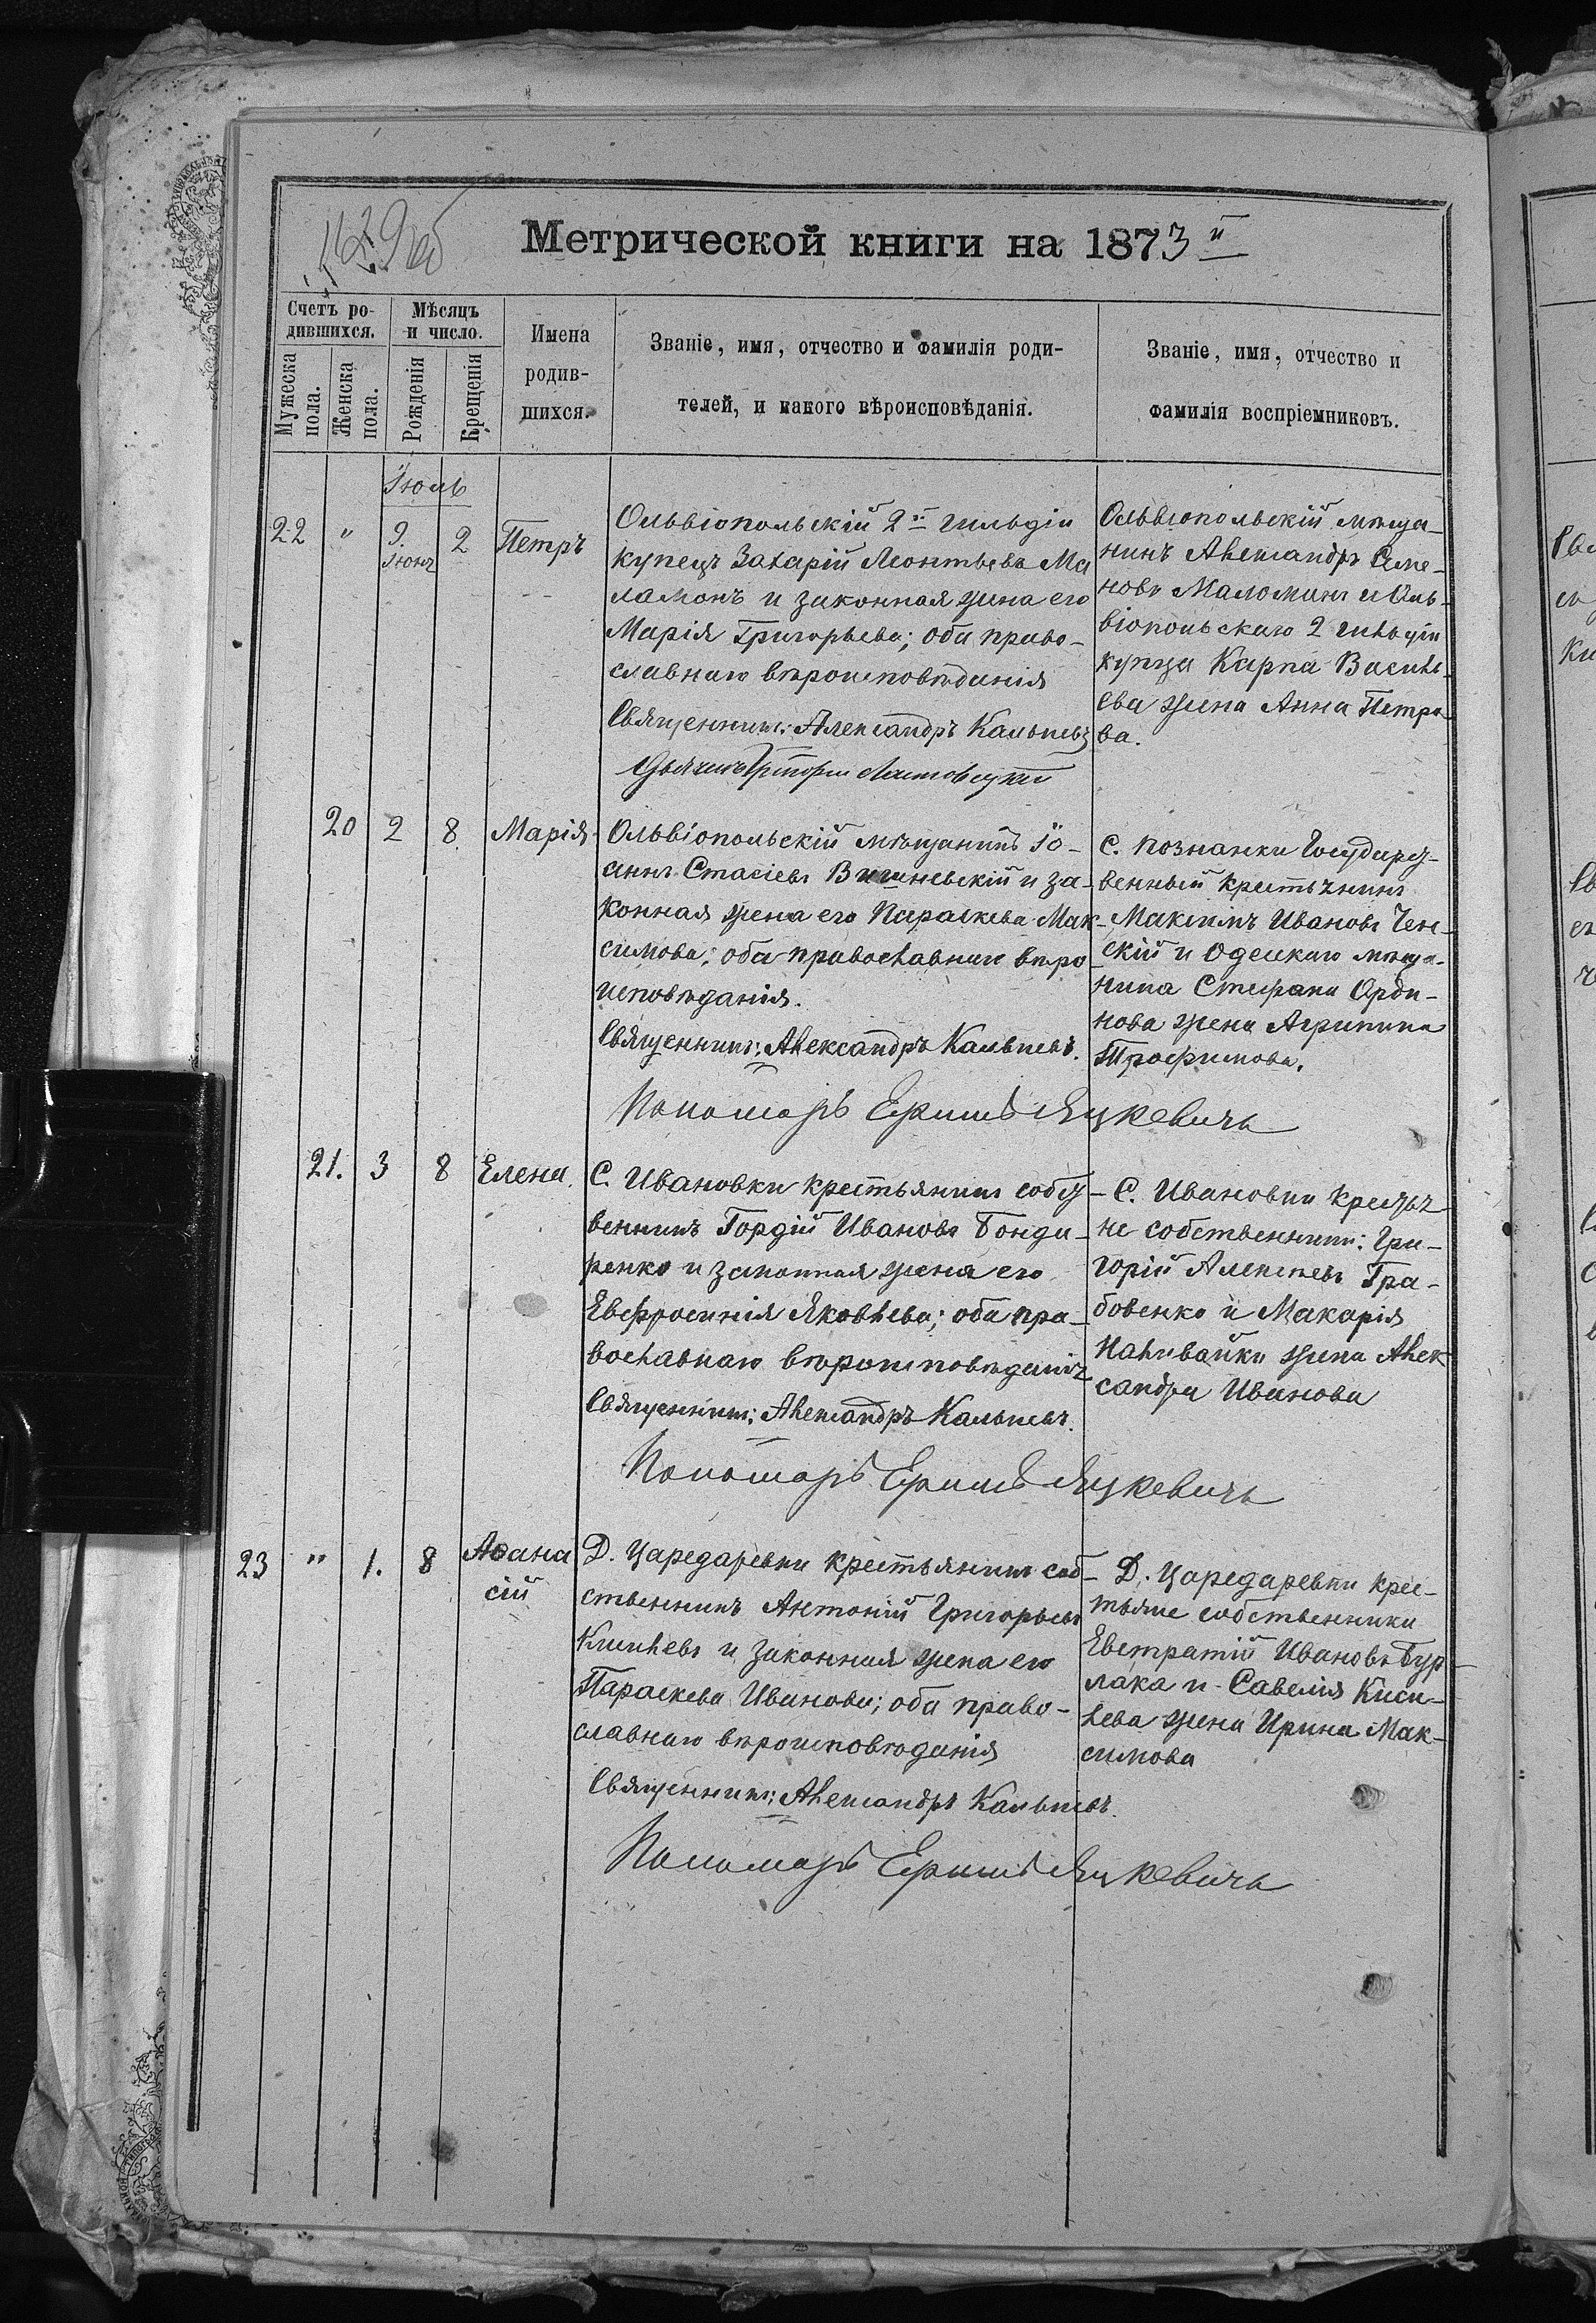 Метрической книги на 1873й
Счетъ ро-
дившихся.
Мужеска
пола.
Женска
пола.
Мѣсяцъ
и число.
Рожденія
Крещенія
Имена
родив-
шихся.
Званіе, имя, отчество и фамилія роди-
телей, и какого вѣроисповѣданія.
Званіе, имя, отчество и
фамилія воспріемниковъ.
Іюль
22 " 9. Іюня 2 Петръ
Ольвіопольскій 2й гильдіи
купецъ Захарій Леонтьевъ Ма
ламонъ и законная жена его
Марія Григорьева; оба право-
славнаго вѣроисповѣданія
Священникъ: Александръ Кальневъ
Дьячекъ Григорій
Ольвіопольскій мѣща-
нинъ Александръ Семе-
новъ Маломанъ и Оль-
віопольскаго 2 гильдіи
купца Карпа Василь-
ева жена Анна Петро-
ва.
20 2 8. Марія
Ольвіопольскій мѣщанинъ Іо-
аннъ Стасіевъ Вишневскій и за-
конная жена его Параскева Мак-
симова; оба православнаго вѣро
исповѣданія.
Священникъ: Александръ Кальневъ.
Пономарь Ефимъ Яцкевичъ
С. Познанки Государст-
венный крестьянинъ
Максимъ Ивановъ Чен-
скій и Одесскаго мѣща-
нина Стефана Орди-
нова жена Агрипина
Трофимова.
21. 3 8 Елена.
С. Ивановки крестьянинъ собст-
венникъ Гордій Ивановъ Бонда-
ренко и законная жена его
Евфросинія Яковлева; оба пра-
вославнаго вѣроисповѣданія
Священникъ: Александръ Кальневъ.
Пономарь Ефимъ Яцкевичъ
С. Ивановки крестья
не собственники: Гри-
горій Алексѣевъ Гра-
бовенко и Макарія
Наливайки жена Алек
сандра Иванова
23 " 1. 8 Аѳана
сій
Д. Царедаревки крестьянинъ соб-
ственникъ Антоній Григорьевъ
Киселевъ и законная жена его
Параскева Иванова; оба право-
славнаго вѣроисповѣданія
Священникъ: Александръ Кальневъ.
Пономарь Ефимъ Яцкевичъ
Д. Царедаревки крес-
тьяне собственники
Евстратій Ивановъ Бур-
лака и Савелія Кисе-
лева жена Ирина Мак-
симова